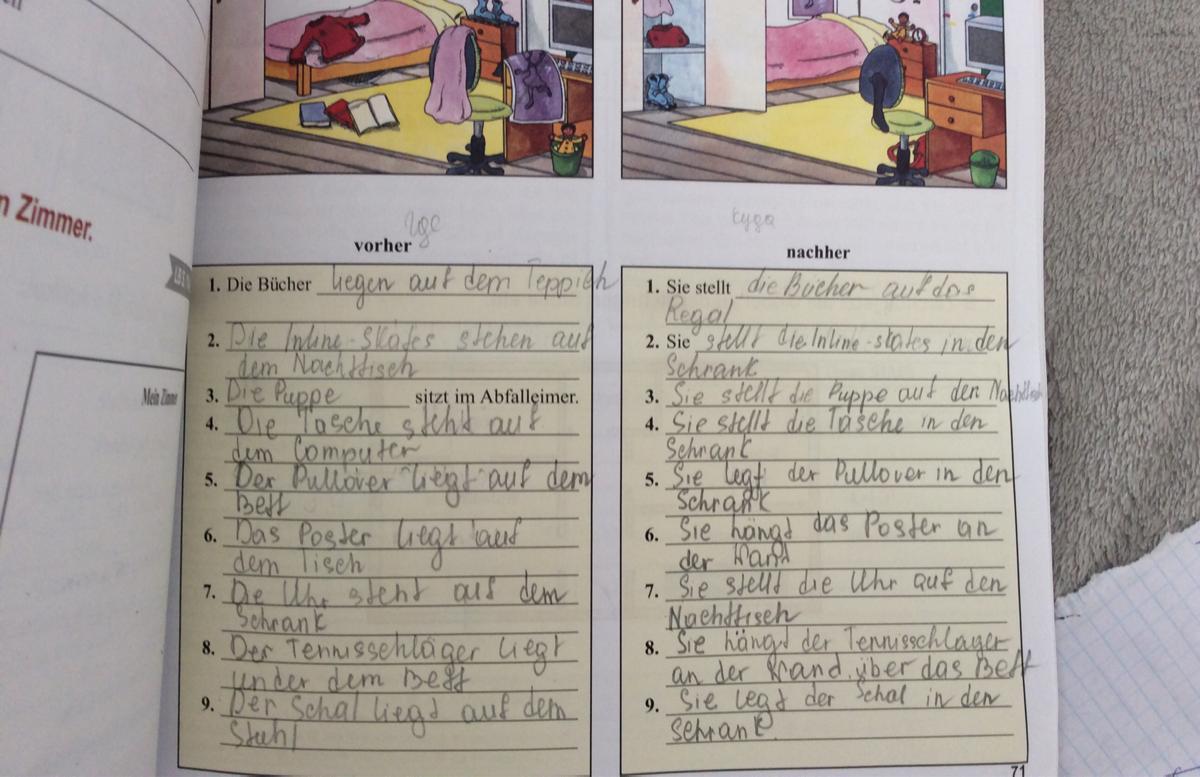 n Zimmer.
Mein Zimme
где
куда
vorher
nachher
1. Die Bücher liegen auf dem Teppich
2. Die Inline-Skates stehen auf
dem Nachttisch
3. Die Puppe sitzt im Abfalleimer.
4. Die Tasche steht auf
dem Computer
5. Der Pullover liegt auf dem
Bett
6. Das Poster liegt auf
dem Tisch
7. Die Uhr steht auf dem
Schrank
8. Der Tennisschläger liegt
under dem Bett
9. Der Schal liegt auf dem
Stuhl
1. Sie stellt die Bücher auf das
Regal
2. Sie stellt die Inline-skates in den
Schrank
3. Sie stellt die Puppe auf den Nachttisch
4. Sie stellt die Tasche in den
Schrank
5. Sie legt der Pullover in den
Schrank
6. Sie hängt das Poster an
der Wand
7. Sie stellt die Uhr auf den
Nachttisch
8. Sie hängt der Tennisschlager
an der Wand über das Bett
9. Sie legt der Schal in den
Schrank.
71